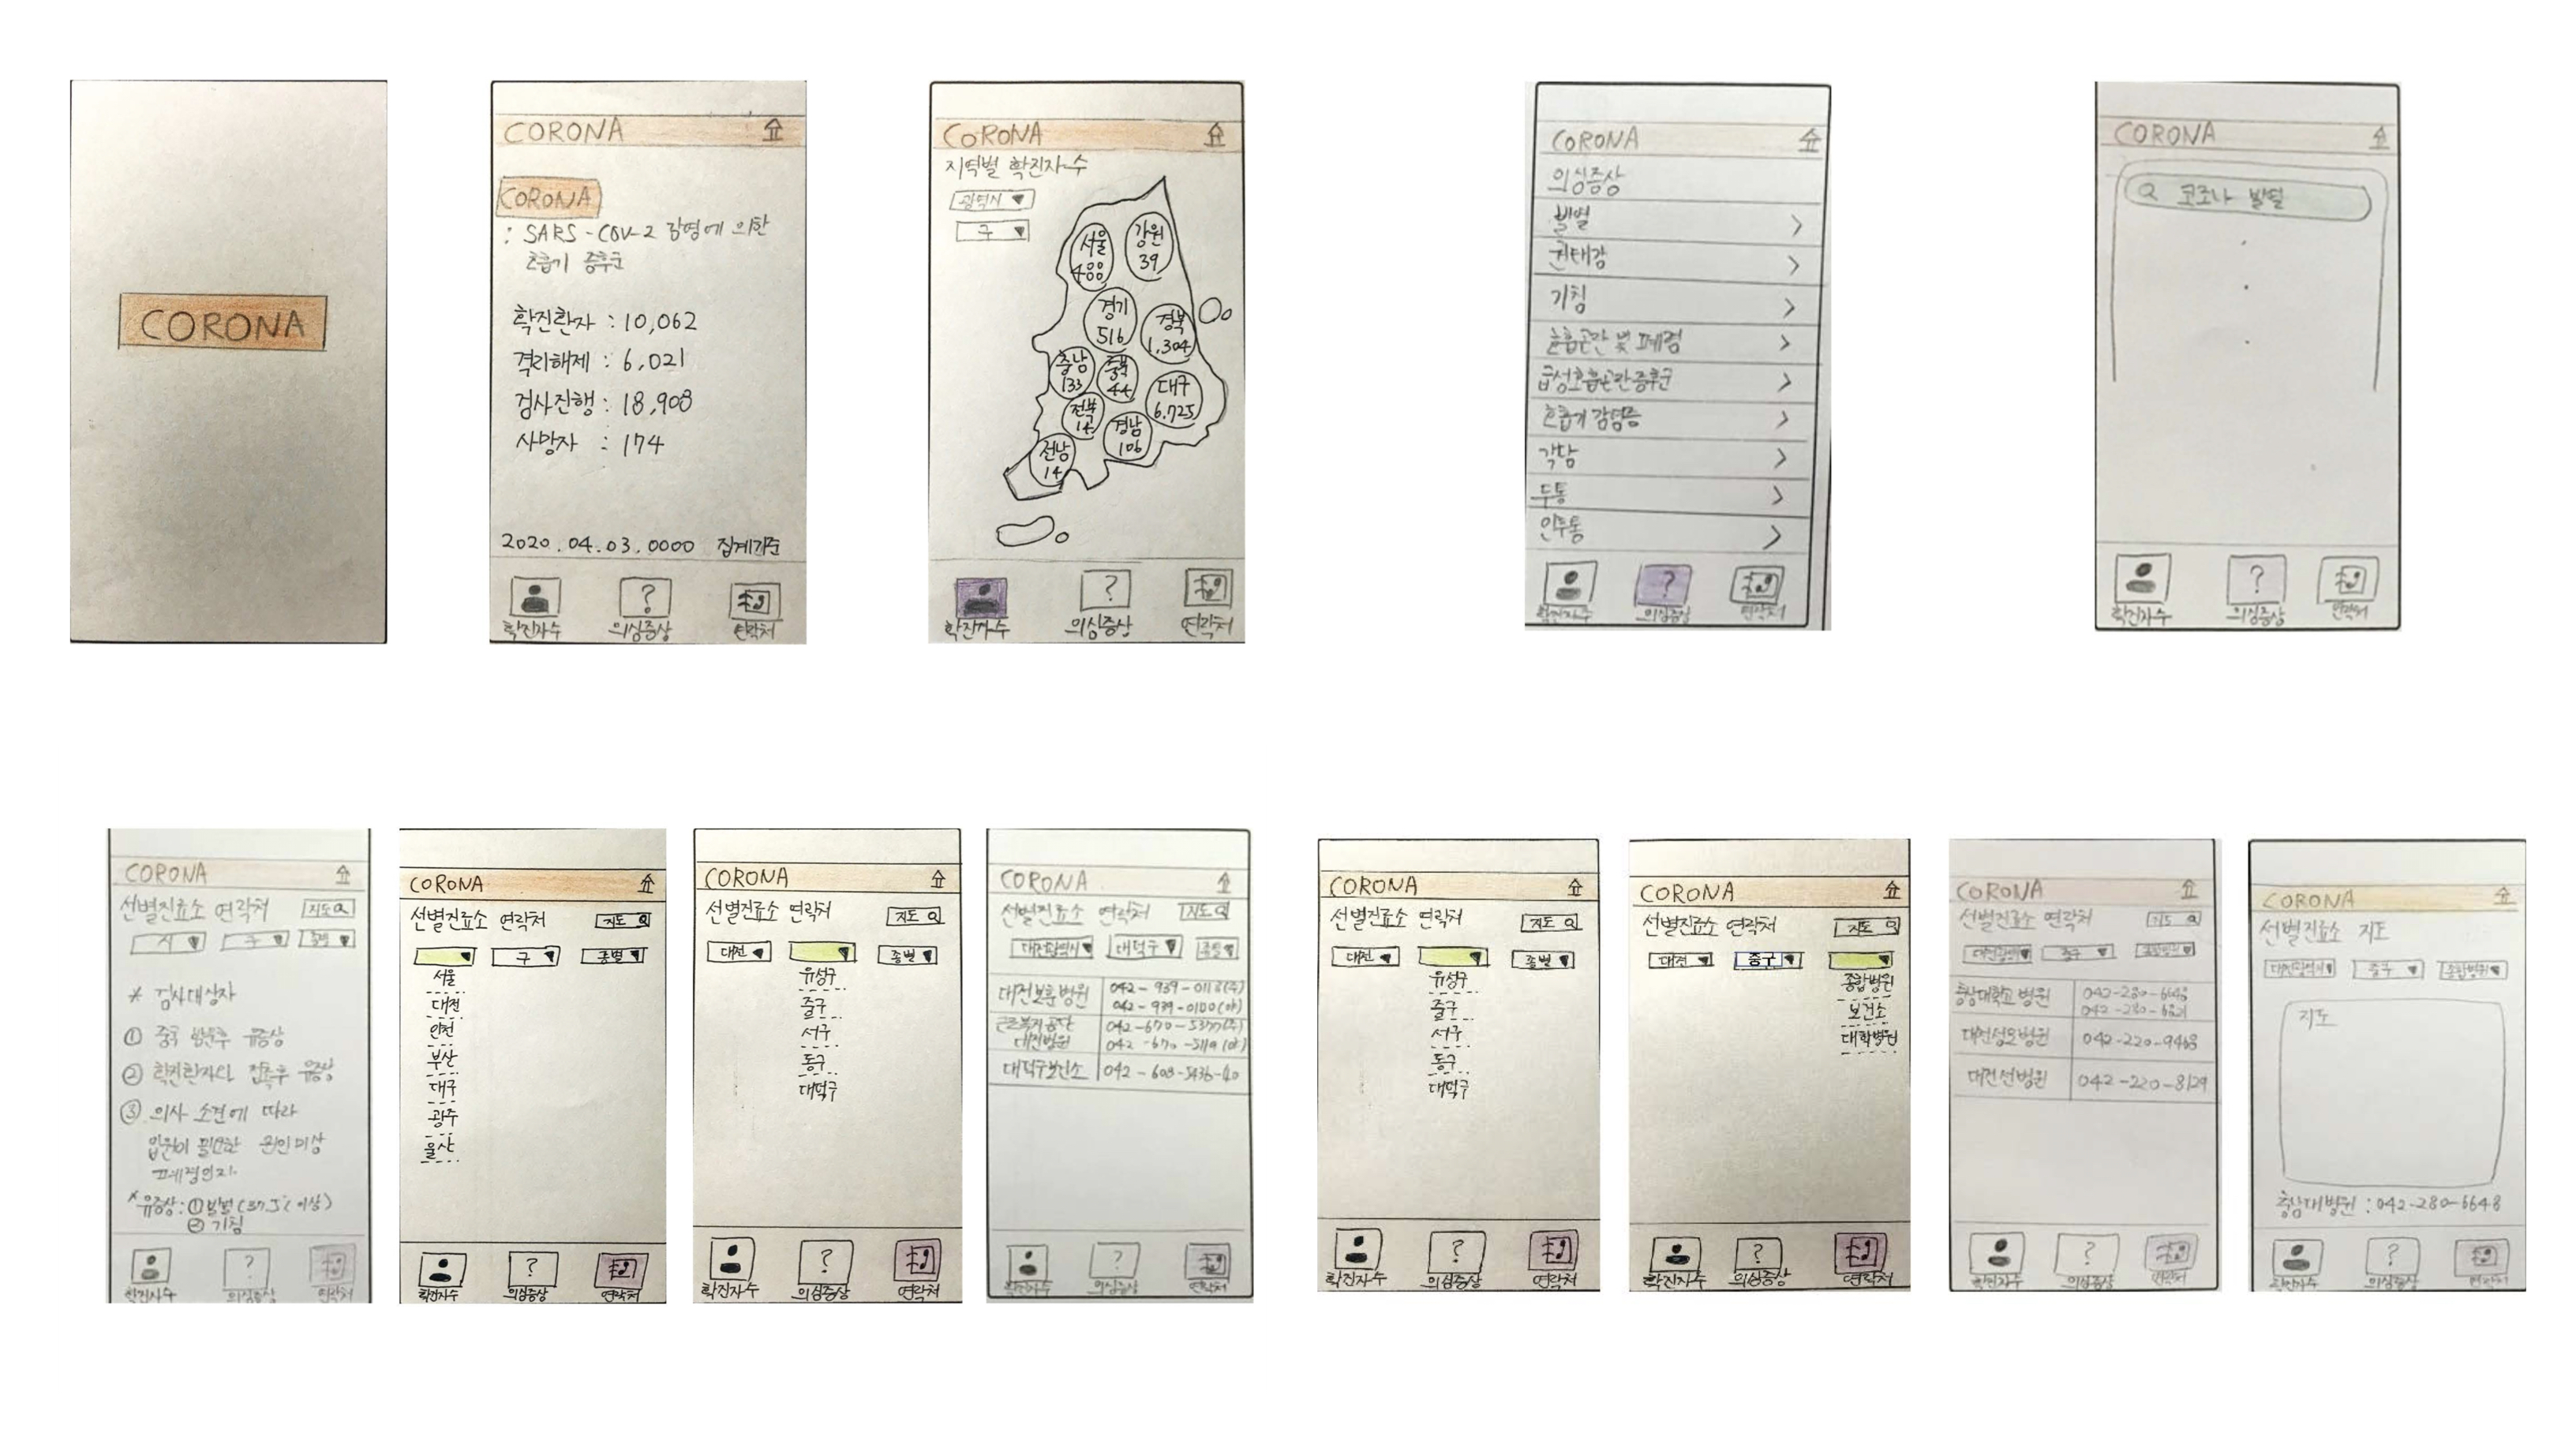 CORONA
CORONA
CORONA
: SARS-COV-2 감염에 의한
호흡기 증후군
확진환자 : 10,062
격리해제 : 6,021
검사진행 : 18,908
사망자 : 174
2020.04.03.0000 집계기준
확진자수 의심증상 연락처
CORONA
지역별 확진자수
광역시
구
서울
488
강원
39
경기
516
경북
1,304
충남
133
충북
44
대구
6,725
전북
14
경남
106
전남
14
확진자수 의심증상 연락처
CORONA
의심증상
발열
권태감
기침
호흡곤란 및 폐렴
급성호흡곤란증후군
호흡기 감염증
객담
두통
인두통
확진자수 의심증상 연락처
CORONA
코로나 발열
확진자수 의심증상 연락처
CORONA
선별진료소 연락처 지도
시 구 종별
* 검사대상자
① 중국 방문후 유증상
② 확진환자와 접촉후 유증상
③ 의사 소견에 따라
입원이 필요한 원인미상
폐렴인자
* 유증상: ① 발열(37.5℃ 이상)
② 기침
확진자수 의심증상 연락처
CORONA
선별진료소 연락처 지도
구 종별
서울
대전
인천
부산
대구
광주
울산
확진자수 의심증상 연락처
CORONA
선별진료소 연락처 지도
대전 종별
유성구
중구
서구
동구
대덕구
확진자수 의심증상 연락처
CORONA
선별진료소 연락처 지도
대전광역시 대덕구 종별
대전보훈병원 042-939-0118(주)
042-939-0100(야)
근로복지공단 042-670-5377(주)
대전병원 042-670-5119(야)
대덕구보건소 042-608-5436-40
확진자수 의심증상 연락처
CORONA
선별진료소 연락처 지도
대전 종별
유성구
중구
서구
동구
대덕구
확진자수 의심증상 연락처
CORONA
선별진료소 연락처 지도
대전 중구
종합병원
보건소
대학병원
확진자수 의심증상 연락처
CORONA
선별진료소 연락처 지도
대전광역시 중구 종합병원
충남대학교병원 042-280-6648
042-280-6821
대전성모병원 042-220-9468
대전선병원 042-220-8129
확진자수 의심증상 연락처
CORONA
선별진료소 지도
대전광역시 중구 종합병원
지도
충남대병원 : 042-280-6648
확진자수 의심증상 연락처